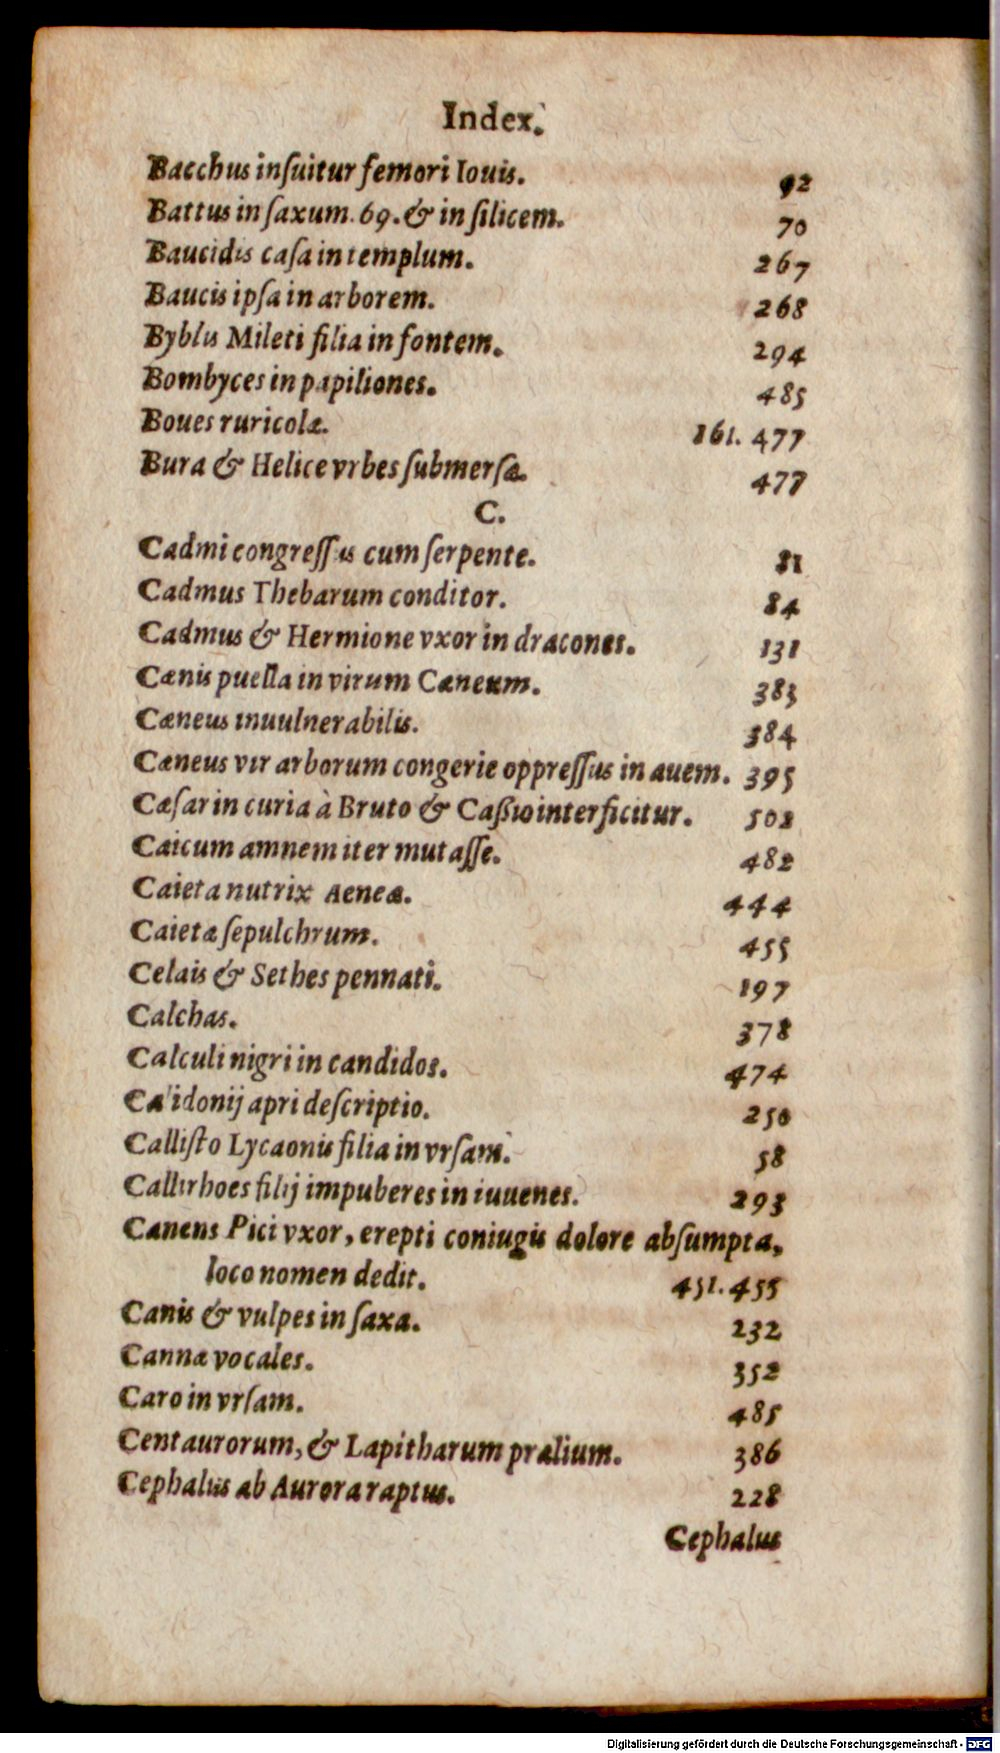 Index.
Bacchus inſuitur femori Iouis. 92
Battus in ſaxum. 69. & in ſilicem. 70
Baucidis caſa in templum. 267
Baucis ipſa in arborem. 268
Byblis Mileti filia in fontem. 294
Bombyces in papiliones. 485
Boues ruricolæ. 161. 477
Bura & Helice vrbes ſubmerſæ. 477
C.
Cadmi congreſſus cum ſerpente. 81
Cadmus Thebarum conditor. 84
Cadmus & Hermione vxor in dracones. 131
Cænis puella in virum Cæneum. 383
Cæneus inuulnerabilis. 384
Cæneus vir arborum congerie oppreſſus in auem. 395
Cæſar in curia à Bruto & Caßio interficitur. 502
Caicum amnem iter mutaſſe. 482
Caieta nutrix Aeneæ. 444
Caietæ ſepulchrum. 455
Celais & Sethes pennati. 197
Calchas. 378
Calculi nigri in candidos. 474
Calidonij apri deſcriptio. 250
Calliſto Lycaonis filia in vrſam. 58
Callirhoes filij impuberes in iuuenes. 293
Canens Pici vxor, erepti coniugis dolore abſumpta,
loco nomen dedit. 451. 455
Canis & vulpes in ſaxa. 232
Cannæ vocales. 352
Caro in vrſam. 485
Centaurorum, & Lapitharum prælium. 386
Cephalus ab Aurora raptus. 228
Cephalus
Digitalisierung gefördert durch die Deutsche Forschungsgemeinschaft - DFG